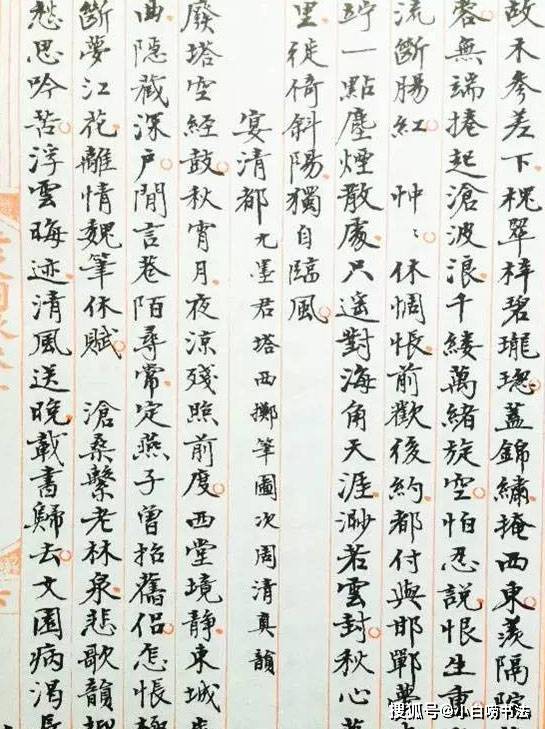 故禾參差下槐翠梓碧瓏璁蓋錦繡掩西東羨隔院
蓉無端捲起滄波浪千縷萬緒旋空怕忍說恨生重
流斷腸紅 忡〻休惆悵前歡後約都付與邯鄲夢
竚一點塵煙散處只遙對海角天涯渺若雲封秋心
里徙倚斜陽獨自臨風
宴清都 九墨君塔西擲筆圖次周清真韻
廢塔空經鼓秋宵月夜涼殘照前度西堂境靜東城
曲隱藏深戶閒言巷陌尋常定燕子曾招舊侶怎悵
斷夢江花離情魏筆休賦 滄桑繫老林泉悲歌韻
愁思吟苦浮雲晦迹清風送晚載書歸去文園病渴長
搜狐号@小白唠书法